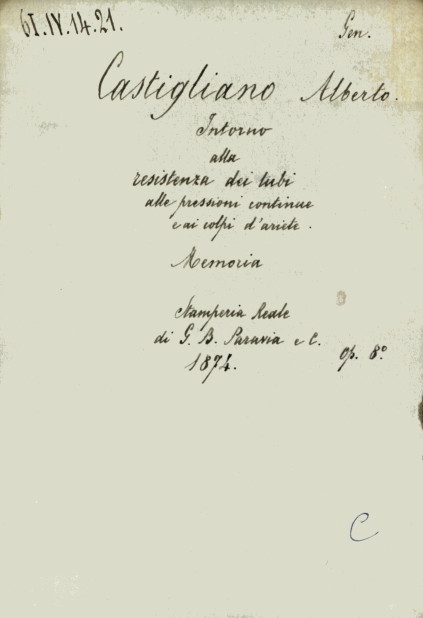 61.IV.14.21.
Gen.
Castigliano Alberto.
Intorno
alla
resistenza dei tubi
alle pressioni continue
e ai colpi d'ariete.
Memoria
Stamperia Reale
di G. B. Paravia e C.
1874.
op. 8°
C